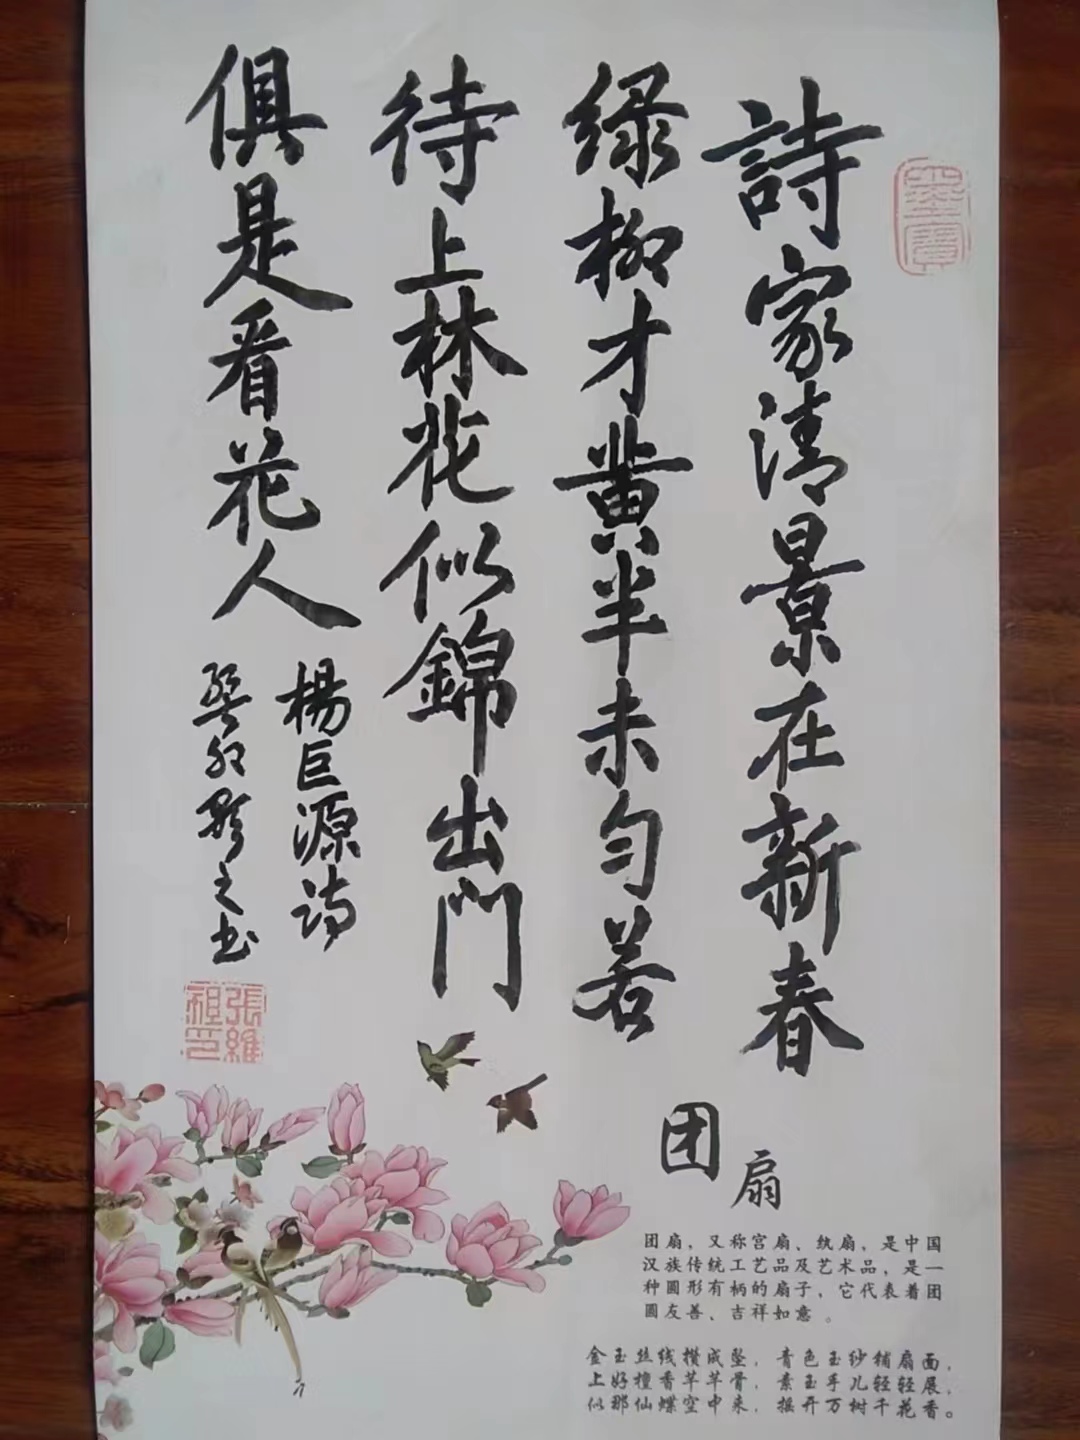 詩家清景在新春
绿柳才黄半未匀若
待上林花似錦出門
俱是看花人
楊巨源诗
之书
張維祖印
团扇
团扇，又称宫扇、纨扇，是中国
汉族传统工艺品及艺术品，是一
种圆形有柄的扇子，它代表着团
圆友善、吉祥如意。
金玉丝线攒成坠，青色玉纱铺扇面，
上好檀香芊芊骨，素玉手儿轻轻展，
似那仙蝶空中来，摇开万树千花香。